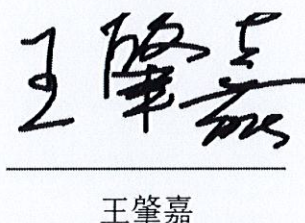 王肇嘉
王肇嘉